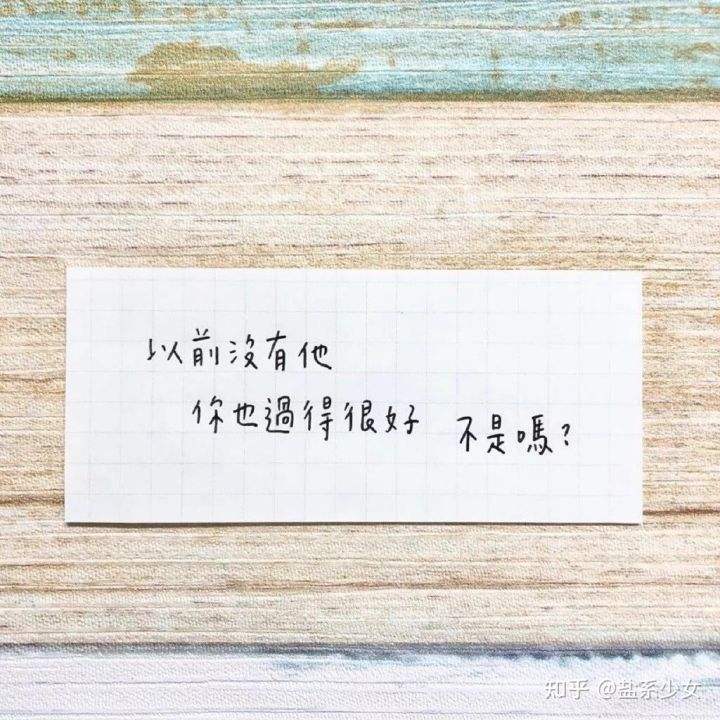 以前沒有他
你也過得很好 不是嗎?
知乎 @盐系少女